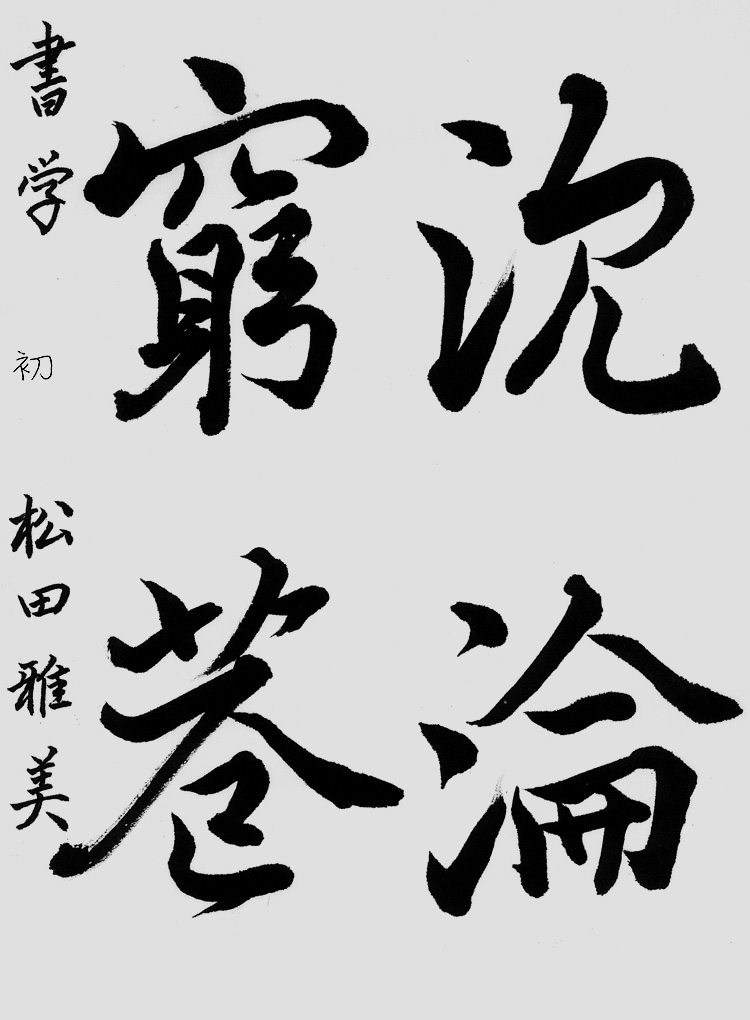 沈淪
窮巷
書学 初 松田雅美